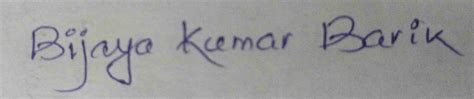 Bijaya Kumar Barik